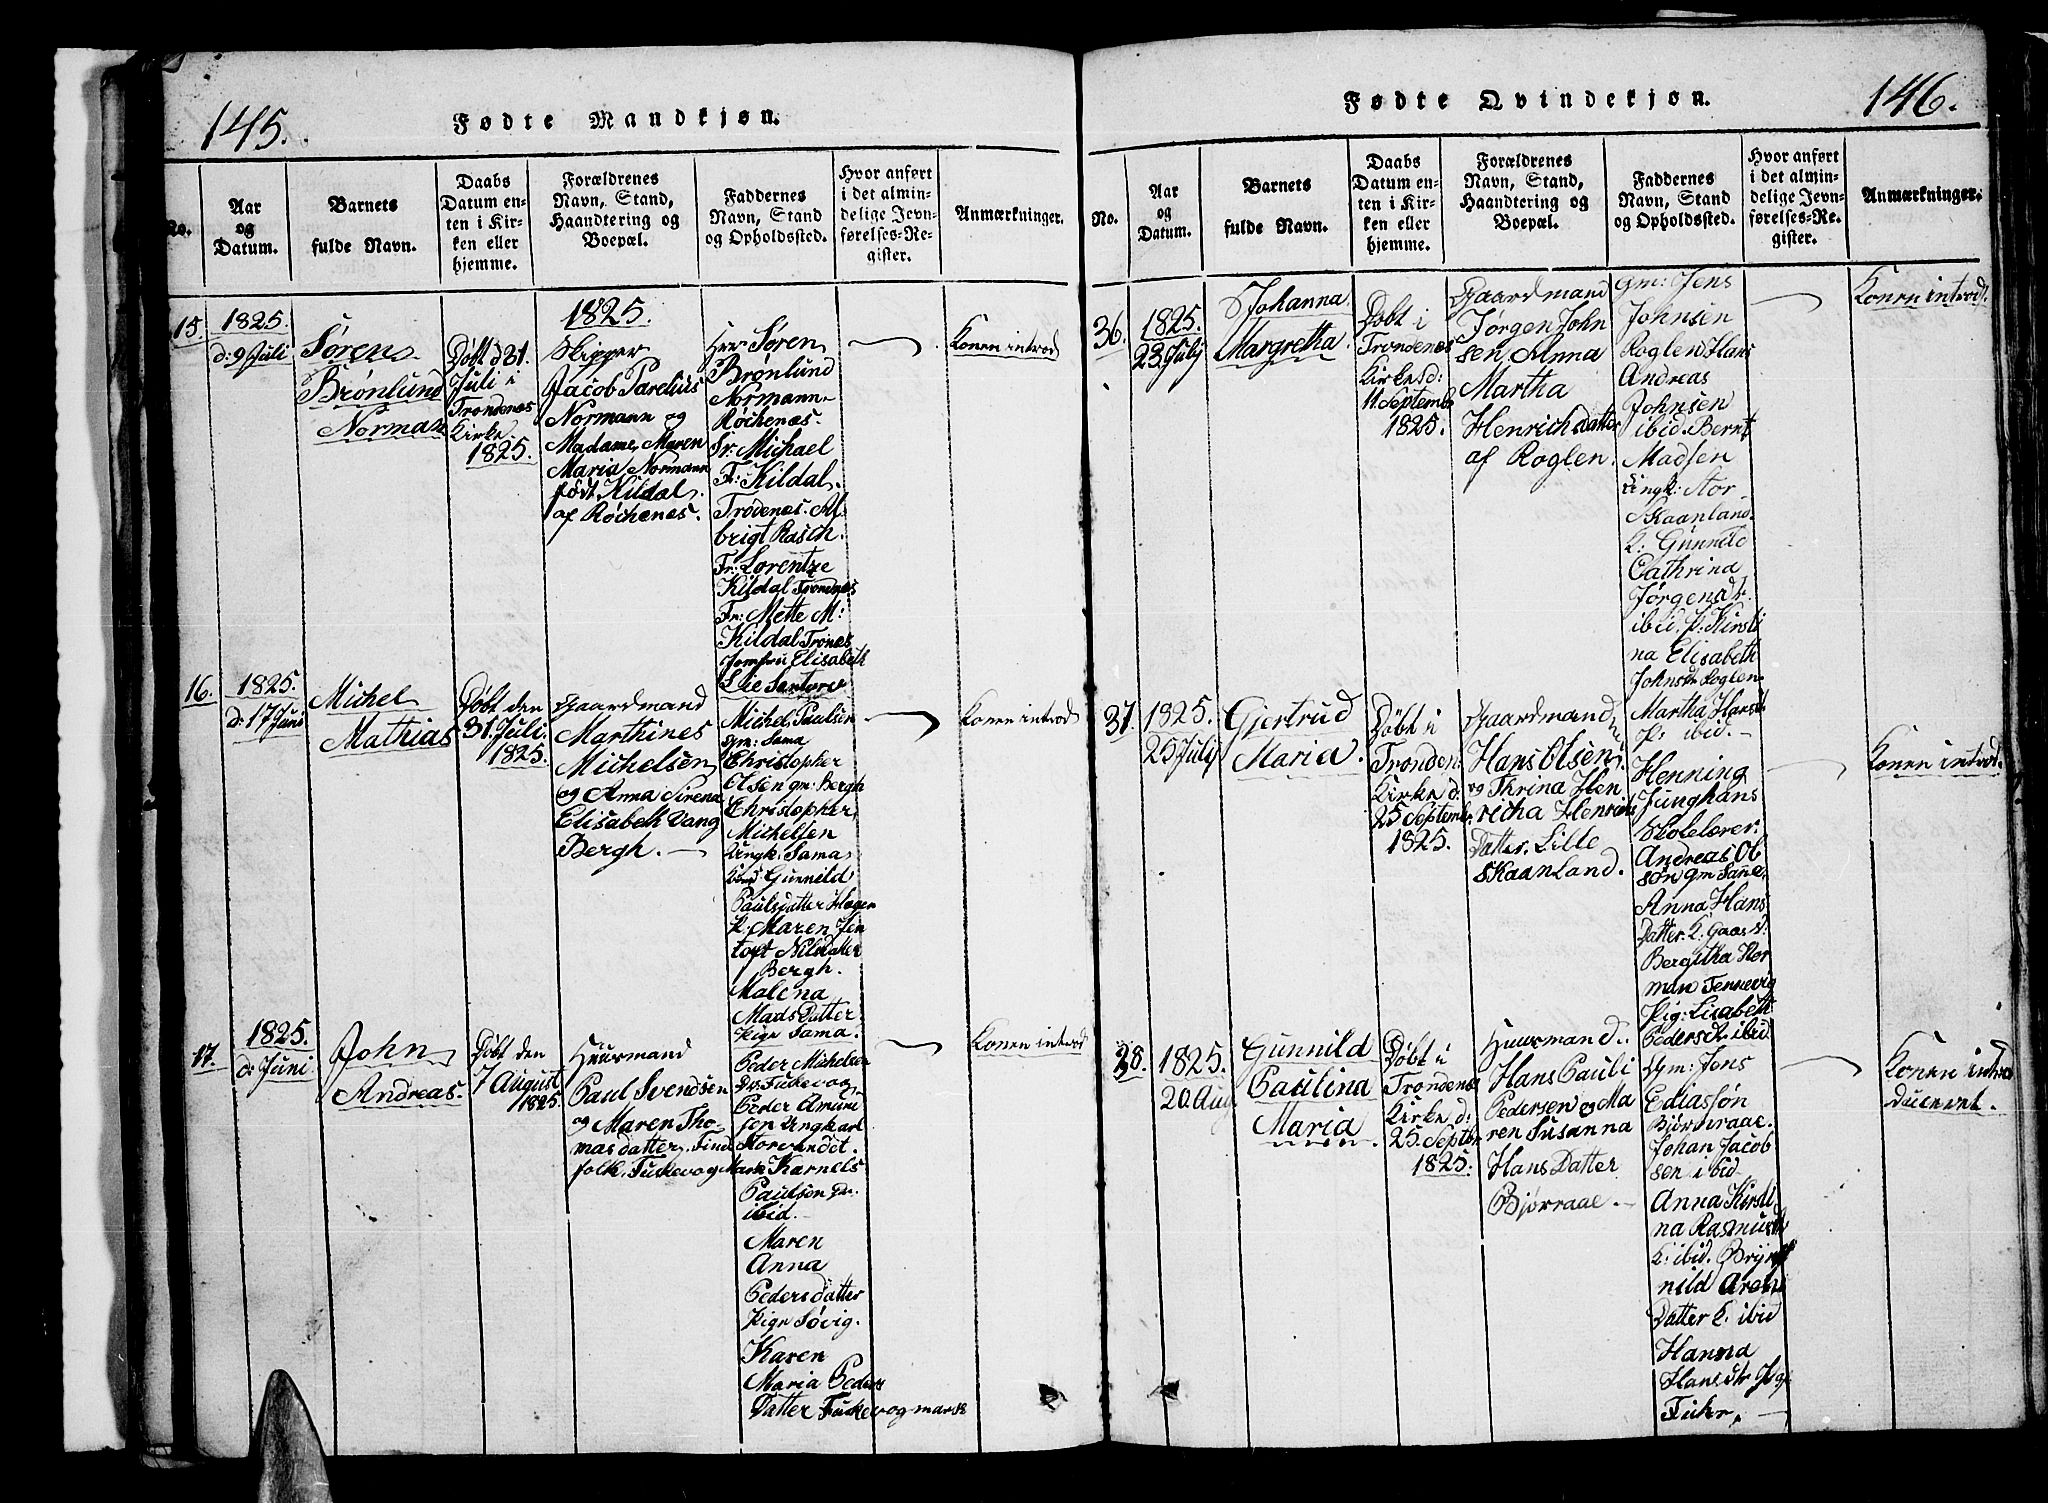 145.
Fødte Mandkjøn.
No.
Aar
og
Datum.
Barnets
fulde Navn.
Daabs
Datum en-
ten i Kir-
ken eller
hjemme.
Forældrenes
Navn, Stand,
Haandtering og
Boepæl.
Faddernes
Navn, Stand
og Opholdssted.
Hvor anført
i det almin-
delige Jevn-
førelses-Re-
gister.
Anmærkninger.
15.
1825.
d: 9 Juli
Søren
Brønlund
Norman
Døbt d 31.
Juli i
Trondenæs
Kirke
1825.
1825.
Skipper
Jacob Parelius
Normann og
Madame Maren
Maria Normann
født Kildal.
af Røchenæs.
Herr Søren
Brønlund
Normann
Røchenæs.
Sr: Michael
Fr: Kildal.
Trødenæs. Al-
brigt Rasch.
Fr: Lorentze
Kildal Trondnæs
Fr: Mette M:
Kildal Tronæs
Jomfru Elisabeth
Lie Santorv
Konen introd
16.
1825.
d: 17 Juni
Michel
Mathias
Døbt den
31. Juli.
1825.
Gaardmand
Marthines
Michelsen
og Anna Sirena
Elisabeth Vang
Bergh.
Michel Paulsen
gm: Sama
Christopher
Olsen gm: Bergh
Christopher
Michelsen
Ungk. Sama
Gunnild
Paulsdatter
K: Maren Jin
toft Nilsdatter
Bergh.
Malena
Mads Datter.
Pige Sama.
Konen introd
17.
1825.
d: Juni
John
Andreas.
Døbt den
7 August
1825.
Huusmand
Paul Svendsen
og Maren Tho-
mas datter. Find
folk.
Peder Michelsen
Peder Amuni
sen Ungkarl
Storvandet.
Karnels
Paulsen
ibid.
Maren
Anna
Pedersdatter
Pige Søvig.
Karen
Maria Peders
Datter
Konen introd
Fødte Qvindekjøn.
146.
No.
Aar
og
Datum.
Barnets
fulde Navn.
Daabs
Datum en-
ten i Kir-
ken eller
hjemme.
Forældrenes
Navn, Stand,
Haandtering og
Boepæl.
Faddernes
Navn, Stand
og Opholdssted.
Hvor anført
i det almin-
delige Jevn-
førelses-Re-
gister.
Anmærkninger.
36.
1825.
23 July
Johanna
Margretha
Døbt i
Trondenæs
Kirke d:
11 Septembr
1825.
Gaardmand
Jørgen John
sen. Anna
Martha
Henrichdatter
af Roglen.
gm: Jens
Johnsen
Roglen Hans
Andreas
Johnsen
ibid. Bernt
Madsen
Ungk: Stor
Skaanland.
K: Gunnild
Cathrina
Jørgensdr.
ibid. P. Kirsti
na Elisabeth
Johnsdr Roglen
Martha Hansdr
P: ibid.
Konen introd.
37.
1825.
25 July
Gjertrud
Maria.
Døbt i
Tronden:
Kirke d:
25 September
1825.
Gaardmand
Hans Olsen
og Thrina Hen
richa Henrichs
Datter. Lille
Skaanland.
Henning
Junghans
Skolelærer.
Andreas Ol
søn gm
Anna Hans
Datter. K.
Bergitha Nor
man Tennevig
Pig: Lisabeth
Pedersdr ibid
Konen introd.
38.
1825.
20. Aug
Gunnild
Paulina
Maria
Døbt i
Trondenæs
Kirke d:
25. Septbr
1825.
Huusmand.
Hans Pauli
Pedersen og Ma
ren Susanna
Hans Datter
Bjørraae.
Gm: Jens
Ediassøn
Bjørnraae.
Johan Jacob
sen ibid
Anna Kirsti
na Rasmusdr
K: ibid.
Datter K. ibid
Hanna
Hansdtr
Konen intro
duceret.